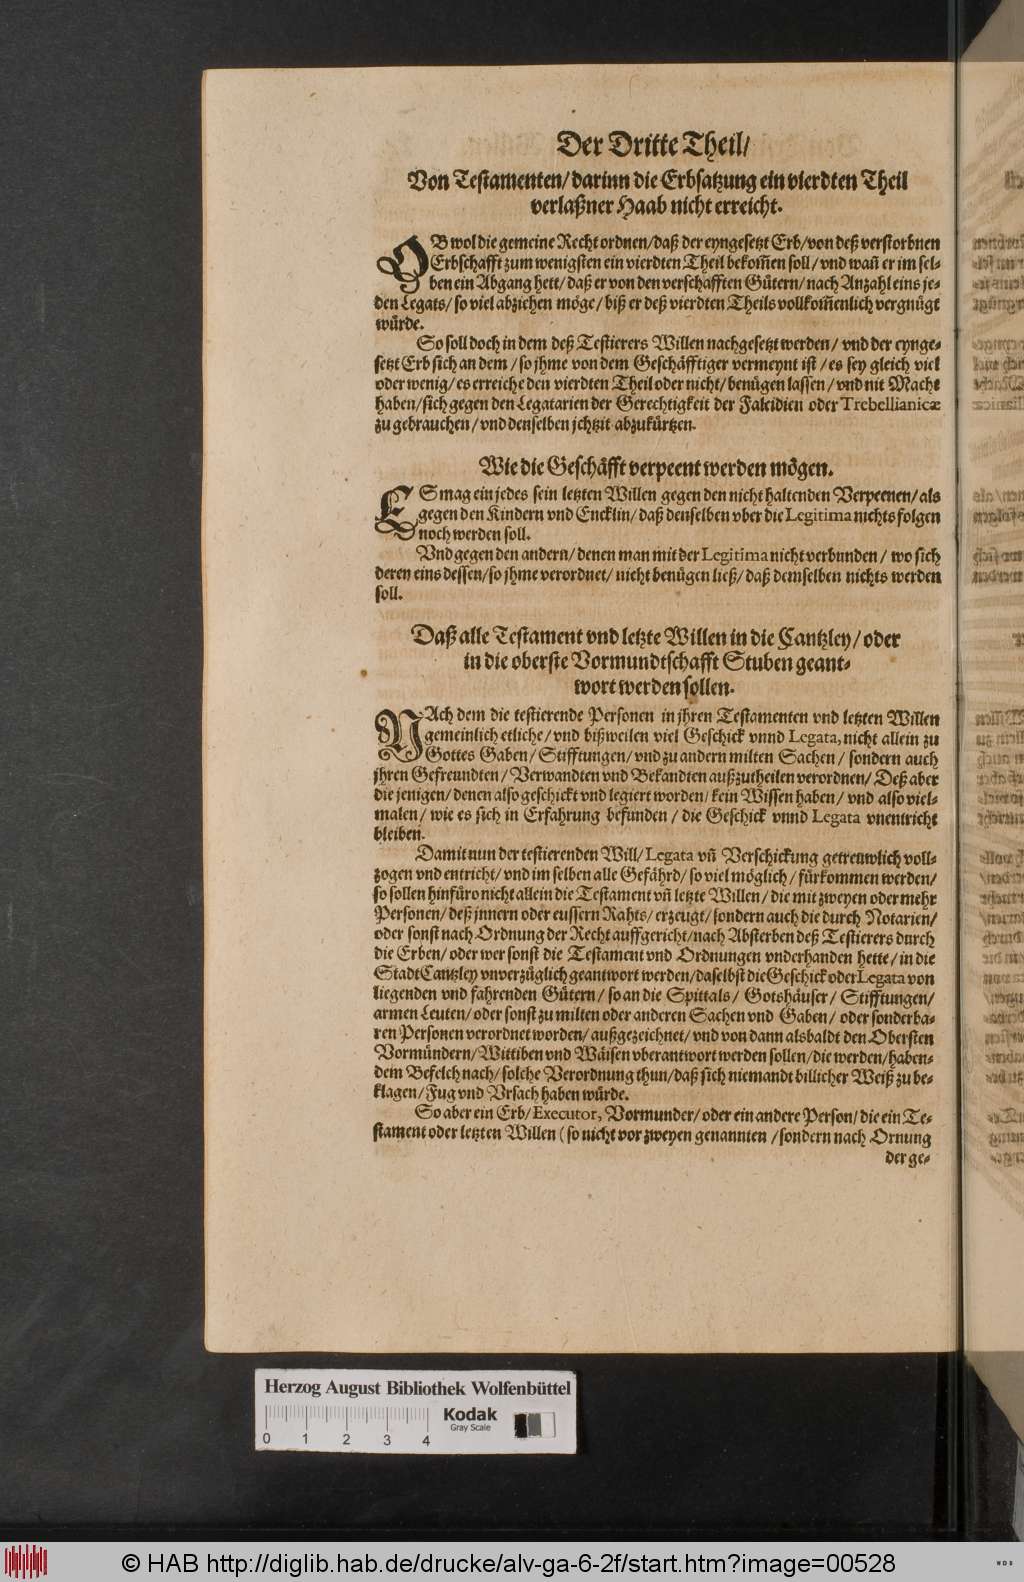 Der Dritte Theil/
Von Testamenten/ darinn die Erbsatzung ein vierdten Theil
verlaßner Haab nicht erreicht.
OB wol die gemeine Recht ordnen/ daß der eyngesetzt Erb/ von deß verstorbnen
Erbschafft zum wenigsten ein vierdten Theil bekom̃en soll/ vnd wañ er im sel-
ben ein Abgang hett/ daß er von den verschafften Gütern/ nach Anzahl eins je-
den Legats/ so viel abziehen möge/ biß er deß vierdten Theils vollkom̃enlich vergnügt
würde.
So soll doch in dem deß Testierers Willen nachgesetzt werden/ vnd der eynge-
setzt Erb sich an dem/ so jhme von dem Geschäfftiger vermeynt ist/ es sey gleich viel
oder wenig/ es erreiche den vierdten Theil oder nicht/ benügen lassen/ vnd nit Macht
haben/ sich gegen den Legatarien der Gerechtigkeit der Falcidien oder Trebellianicæ
zu gebrauchen/ vnd denselben jchtzit abzukürtzen.
Wie die Geschäfft verpeent werden mögen.
ES mag ein jedes sein letzten Willen gegen den nicht haltenden Verpeenen/ als
gegen den Kindern vnd Encklin/ daß denselben vber die Legitima nichts folgen
noch werden soll.
Vnd gegen den andern/ denen man mit der Legitima nicht verbunden/ wo sich
deren eins dessen/ so jhme verordnet/ nicht benügen ließ/ daß demselben nichts werden
soll.
Daß alle Testament vnd letzte Willen in die Cantzley/ oder
in die oberste Vormundtschafft Stuben geant-
wort werden sollen.
NAch dem die testierende Personen in jhren Testamenten vnd letzten Willen
gemeinlich etliche/ vnd bißweilen viel Geschick vnnd Legata, nicht allein zu
Gottes Gaben/ Stifftungen/ vnd zu andern milten Sachen/ sondern auch
jhren Gefreundten/ Verwandten vnd Bekandten außzutheilen verordnen/ Deß aber
die jenigen/ denen also geschickt vnd legiert worden/ kein Wissen haben/ vnd also viel-
malen/ wie es sich in Erfahrung befunden/ die Geschick vnnd Legata vnentricht
bleiben.
Damit nun der testierenden Will/ Legata vñ Verschickung getreuwlich voll-
zogen vnd entricht/ vnd im selben alle Gefährd/ so viel möglich/ fürkommen werden/
so sollen hinfüro nicht allein die Testament vñ letzte Willen/ die mit zweyen oder mehr
Personen/ deß jnnern oder eussern Rahts/ erzeugt/ sondern auch die durch Notarien/
oder sonst nach Ordnung der Recht auffgericht/ nach Absterben deß Testierers durch
die Erben/ oder wer sonst die Testament vnd Ordnungen vnderhanden hette/ in die
Stadt Cantzley vnverzüglich geantwort werden/ daselbst die Geschick oder Legata von
liegenden vnd fahrenden Gütern/ so an die Spittals/ Gotshäuser/ Stifftungen/
armen Leuten/ oder sonst zu milten oder anderen Sachen vnd Gaben/ oder sonderba-
ren Personen verordnet worden/ außgezeichnet/ vnd von dann alsbaldt den Obersten
Vormündern/ Wittiben vnd Wäisen vberantwort werden sollen/ die werden/ haben-
dem Befelch nach/ solche Verordnung thun/ daß sich niemandt billicher Weiß zu be-
klagen/ Fug vnd Vrsach haben würde.
So aber ein Erb/ Executor, Vormunder/ oder ein andere Person/ die ein Te-
stament oder letzten Willen (so nicht vor zweyen genannten/ sondern nach Ornung
der ge-
Herzog August Bibliothek Wolfenbüttel
Kodak
Gray Scale
0 1 2 3 4
© HAB http://diglib.hab.de/drucke/alv-ga-6-2f/start.htm?image=00528